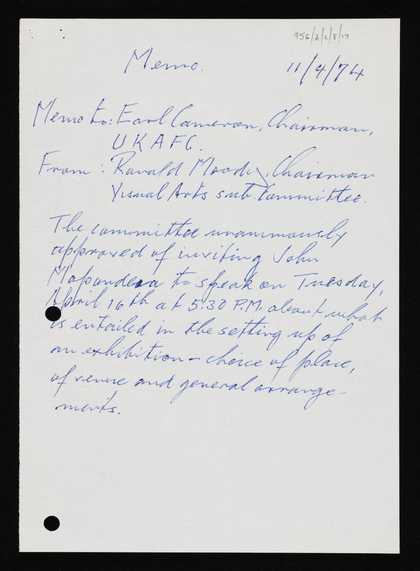 956/2/2/8/17
Memo.
11/4/74
Memo to: Earl Cameron, Chairman,
UKAFC.
From: Ronald Moody, Chairman
Visual Arts sub. Committee.
The committee unanimously
approved of inviting John
Mapondera to speak on Tuesday,
April 16th at 5.30 P.M. about what
is entailed in the setting up of
an exhibition – choice of place,
of venue and general arrange-
ments.